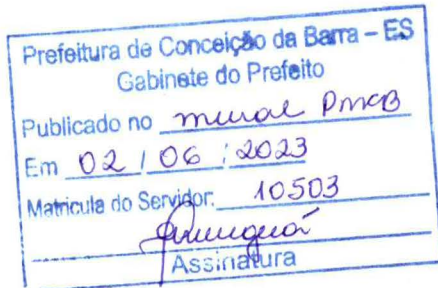 Prefeitura de Conceição da Barra – ES
Gabinete do Prefeito
Publicado no mural PMCB
Em 02 / 06 / 2023
Matricula do Servidor: 10503
Assinatura